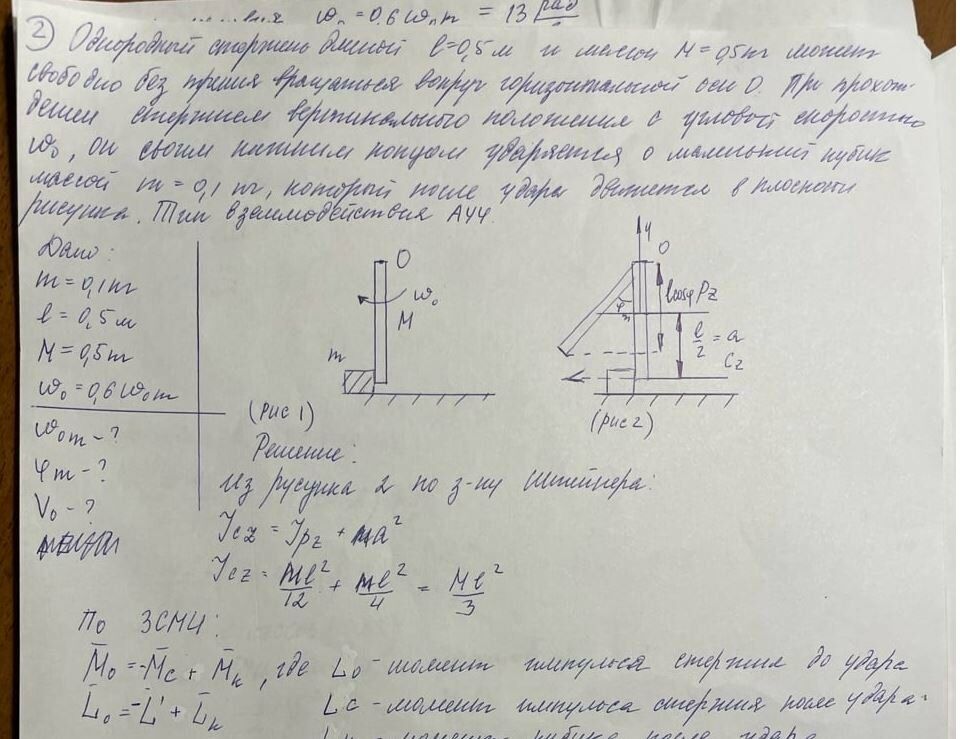 ω_п = 0,6 ω_пm = 13 рад
② Однородный стержень длиной l=0,5м и массой M=0,5кг может
свободно без трения вращаться вокруг горизонтальной оси O. При прохож-
дении стержнем вертикального положения с угловой скоростью
ω₀, он своим нижним концом ударяется о маленький кубик
массой m=0,1 кг, который после удара движется в плоскости
рисунка. Тип взаимодействия АУУ.
Дано:
m=0,1кг
l=0,5м
M=0,5кг
ω₀=0,6ω₀m
ω₀m-?
φm-?
V₀-?
O
ω₀
M
m
(рис 1)
y
O
φm
lcosφ
Pz
l/2 = a
Cz
(рис 2)
Решение:
Из рисунка 2 по з-ну Штейнера:
Jcz = Jpz + Ma²
Jcz = Ml²/12 + Ml²/4 = Ml²/3
По ЗСМИ:
M̄₀=-M̄c + M̄k, где L₀-момент импульса стержня до удара
L̄₀=-L̄' + L̄k Lc-момент импульса стержня после удара
удара